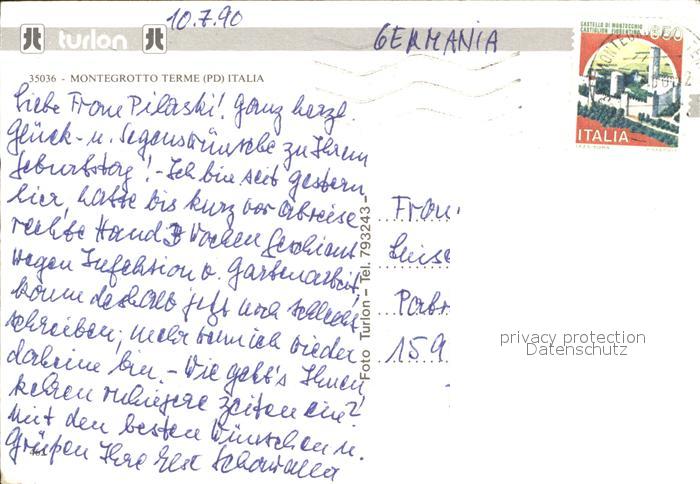 10.7.90
GERMANIA
turlon
CASTELLO DI MONTECCHIO
CASTIGLION FIORENTINO
650
ITALIA
35036 - MONTEGROTTO TERME (PD) ITALIA
Liebe Frau Pilaski! Ganz herzl.
Glück- u. Segenswünsche zu Ihrem
Geburtstag! - Ich bin seit gestern
hier, hatte bis kurz vor Abreise
rechte Hand 3 Wochen geschient
wegen Infektion v. Gartenarbeit,
kann deshalb jetzt noch schlecht
schreiben; mehr wenn ich wieder
daheim bin. - Wie geht's Ihnen
kehren ruhigere Zeiten ein?
Mit den besten Wünschen u.
Grüßen Ihre
Foto Turlon - Tel. 793243 -
Frau
Luise
Pabr
159
privacy protection
Datenschutz